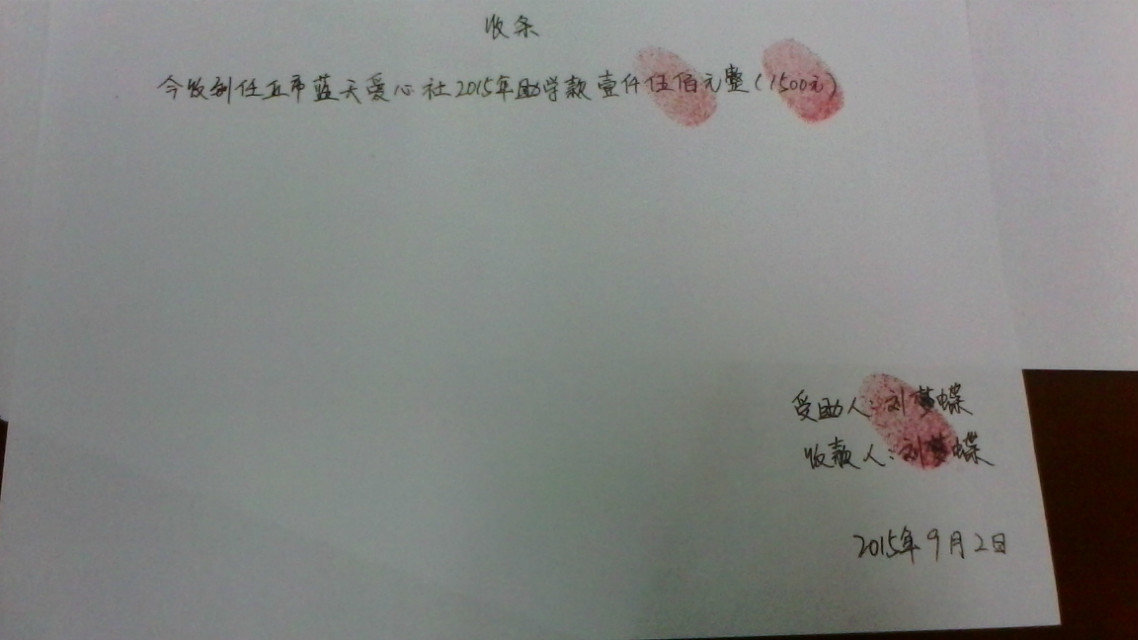 收条
今收到任丘市蓝天爱心社2015年助学款壹仟伍佰元整(1500元)
受助人:刘梦蝶
收款人:刘梦蝶
2015年9月2日